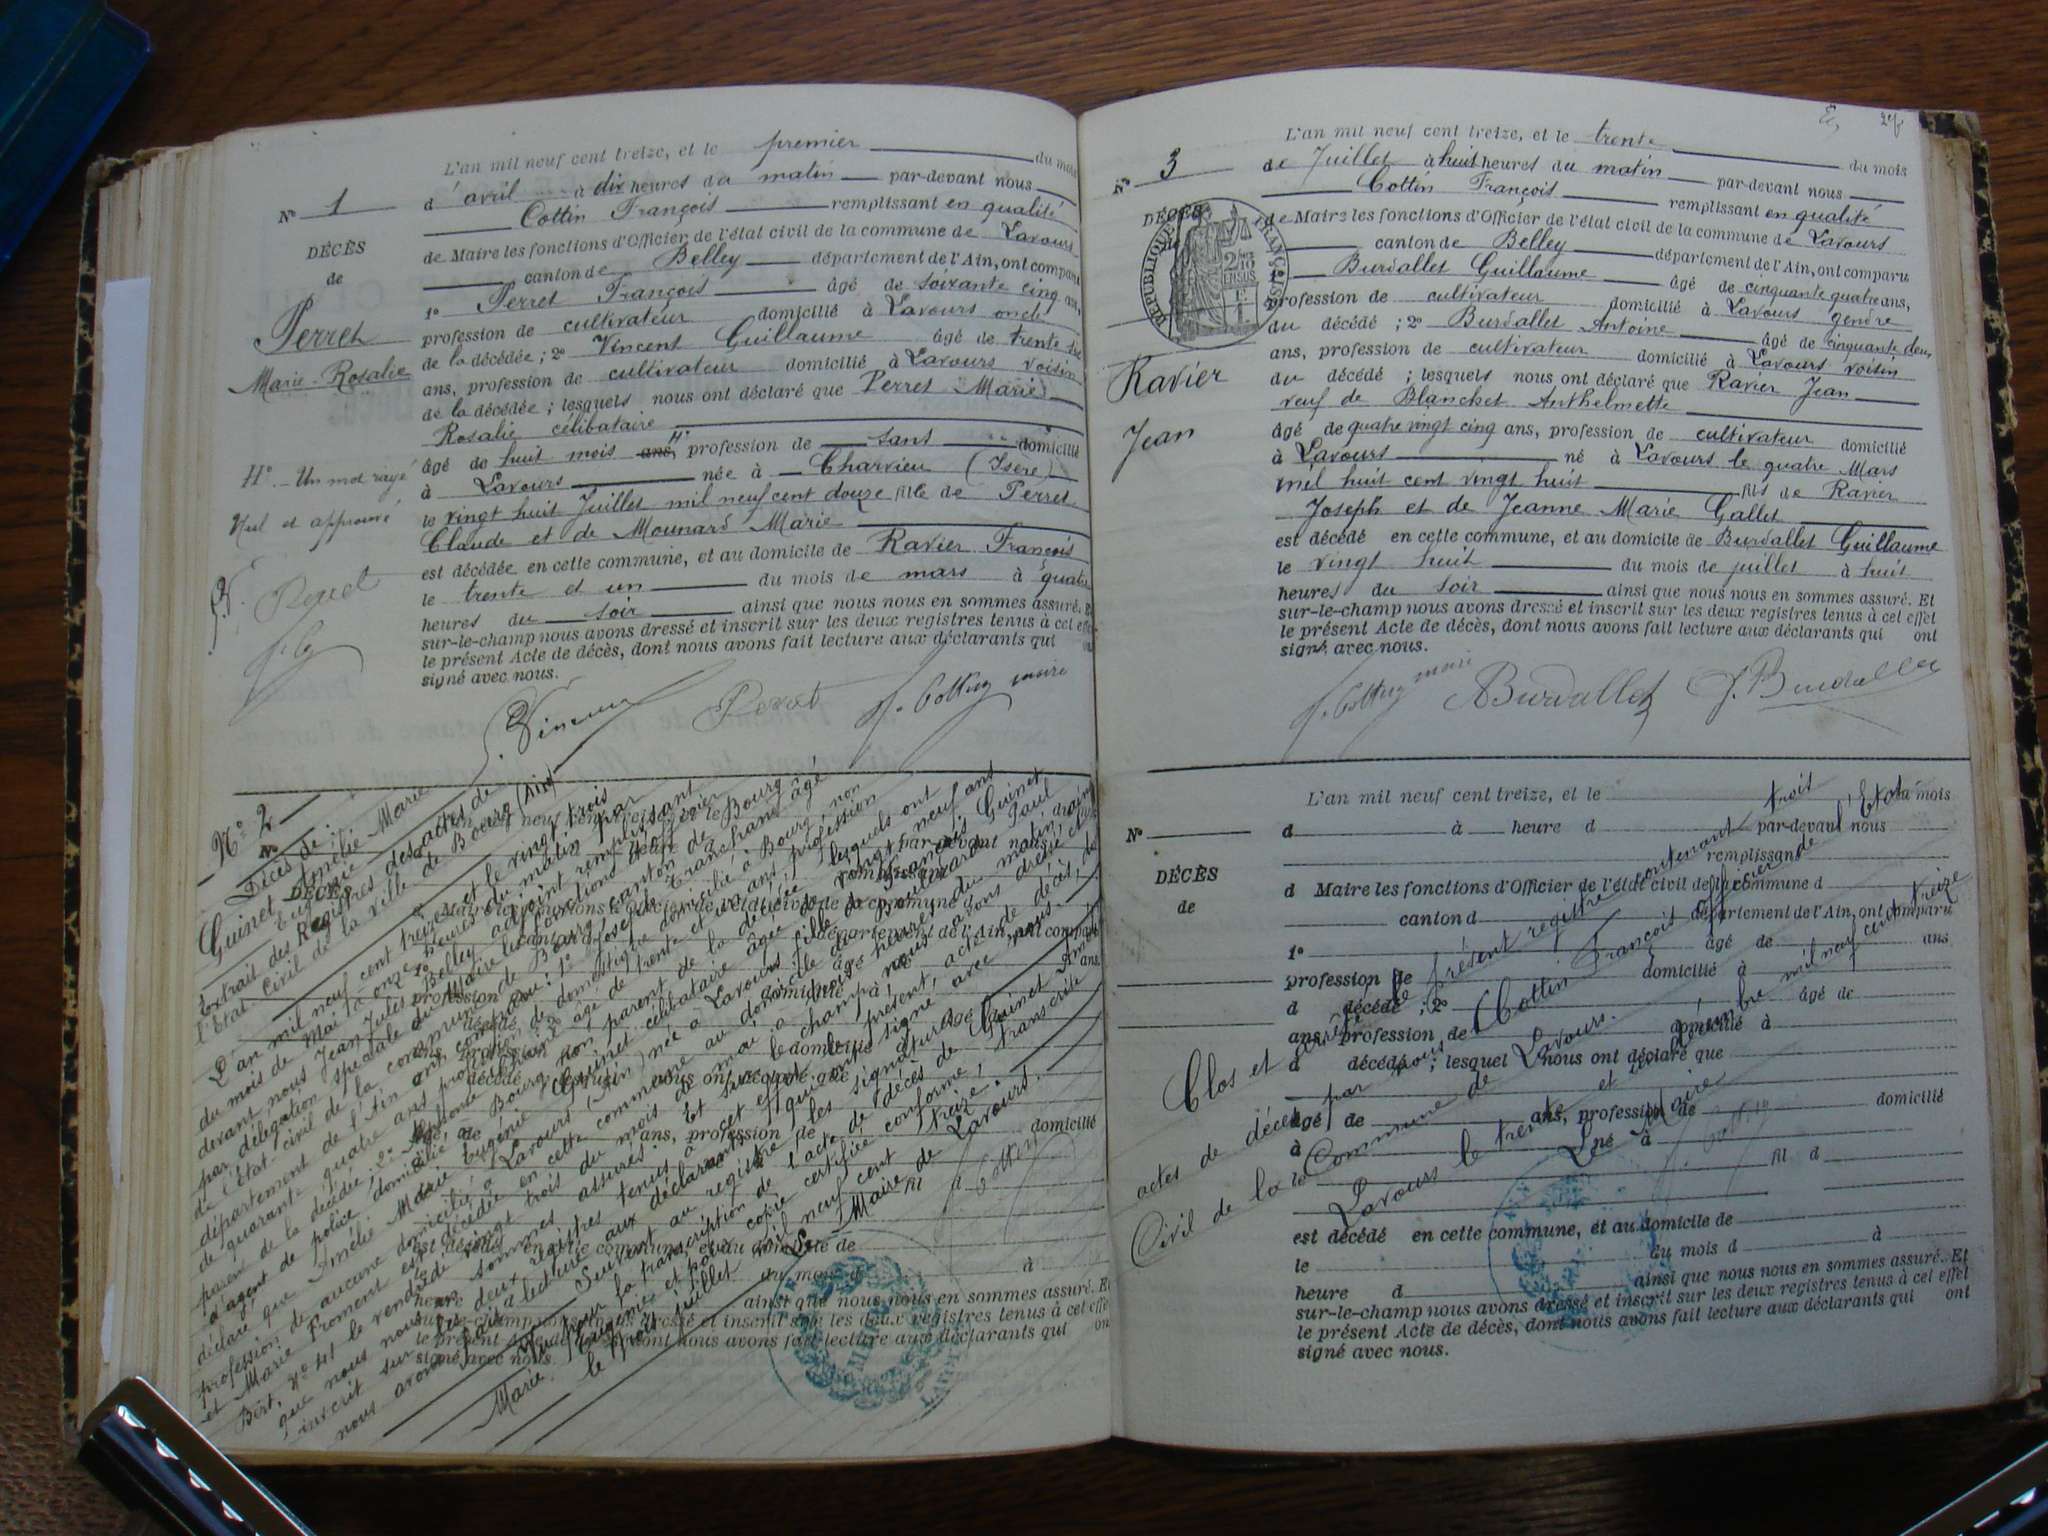 L'an mil neuf cent treize, et le premier du mois
d'avril à dix heures du matin par-devant nous
Nº 1
Cottin François remplissant en qualité
de Maire les fonctions d'Officier de l'état civil de la commune de Lavours
DÉCÈS
canton de Belley département de l'Ain, ont comparu
de
1º Perret François âgé de soixante cinq ans,
profession de cultivateur domicilié à Lavours oncle
Perret
de la décédée; 2º Vincent Guillaume âgé de trente
Marie-Rosalie
ans, profession de cultivateur domicilié à Lavours voisin
de la décédée; lesquels nous ont déclaré que Perret Marie
Rosalie célibataire
âgé de huit mois ans, profession de sans domicilié
H. Un mot rayé
à Lavours née à Charvieu (Isère)
Nul et approuvé
le vingt huit Juillet mil neuf cent douze fille de Perret
Claude et de Mounard Marie
est décédée en cette commune, et au domicile de Ravier François
le trente et un du mois de mars à quatre
heures du soir ainsi que nous nous en sommes assuré. Et
sur-le-champ nous avons dressé et inscrit sur les deux registres tenus à cet effet
le présent Acte de décès, dont nous avons fait lecture aux déclarants qui ont
signé avec nous.
Vincent Perret f. Cottin maire
Nº 2
Décès de :
Guinet Amélie Marie
Eugénie
Extrait des Registres des actes de
l'Etat Civil de la ville de Bourg (Ain)
L'an mil neuf cent treize et le vingt trois
du mois de Mai à onze heures du matin par
devant nous Jean Jules Belley adjoint remplissant
par délégation spéciale du Maire les fonctions d'officier
de l'Etat civil de la commune de Bourg canton de Bourg
département de l'Ain ont comparu : 1º Joseph Tranchand âgé
de quarante quatre ans profession de domestique domicilié à Bourg non
parent de la décédée; 2º âgé de trente et un ans profession
d'agent de police domicilié à Bourg non parent de la décédée lesquels ont
déclaré que Amélie Marie Eugénie Guinet célibataire âgée de vingt neuf ans
profession de aucune domiciliée à Lavours (Ain) née à Lavours fille de François Guinet
et Marie Froment est décédée en cette commune au domicile de Boulevard Paul
Bert, nº 41 le vingt trois du mois de mai à heures du matin, ainsi
que nous nous en sommes assuré. Et sur le champ nous avons dressé et
inscrit sur les deux registres tenus à cet effet le présent acte de décès, dont
nous avons fait lecture aux déclarants qui ont signé avec nous.
Suivant au registre les signatures
Pour la transcription de l'acte de décès de Guinet Amélie
Marie Eugénie et pour copie certifiée conforme, transcrite
le juillet mil neuf cent treize.
Le Maire de Lavours.
L'an mil neuf cent treize, et le trente du mois
Nº 3
de Juillet à huit heures du matin par-devant nous
Cottin François remplissant en qualité
DÉCÈS
de Maire les fonctions d'Officier de l'état civil de la commune de Lavours
RÉPUBLIQUE FRANÇAISE
canton de Belley département de l'Ain, ont comparu
Burdallet Guillaume âgé de cinquante quatre ans,
profession de cultivateur domicilié à Lavours gendre
du décédé; 2º Burdallet Antoine âgé de cinquante deux
ans, profession de cultivateur domicilié à Lavours voisin
Ravier
du décédé; lesquels nous ont déclaré que Ravier Jean
veuf de Blanchet Anthelmette
Jean
âgé de quatre vingt cinq ans, profession de cultivateur domicilié
à Lavours né à Lavours le quatre Mars
mil huit cent vingt huit fils de Ravier
Joseph et de Jeanne Marie Gallet
est décédé en cette commune, et au domicile de Burdallet Guillaume
le vingt huit du mois de juillet à huit
heures du soir ainsi que nous nous en sommes assuré. Et
sur-le-champ nous avons dressé et inscrit sur les deux registres tenus à cet effet
le présent Acte de décès, dont nous avons fait lecture aux déclarants qui ont
signé avec nous.
f. Cottin maire A Burdallet J. Burdallet
L'an mil neuf cent treize, et le du mois
Nº
d à heure d par-devant nous
remplissant
DÉCÈS
d Maire les fonctions d'Officier de l'état civil de la commune d
de
canton d département de l'Ain, ont comparu
1º âgé de ans
profession de domicilié à
d décédé; 2º âgé de
ans, profession de domicilié à
d décédé; lesquel nous ont déclaré que
âgé de ans, profession de domicilié
à né à
le fil d
est décédé en cette commune, et au domicile de
le du mois d à
heure d ainsi que nous nous en sommes assuré. Et
sur-le-champ nous avons dressé et inscrit sur les deux registres tenus à cet effet
le présent Acte de décès, dont nous avons fait lecture aux déclarants qui ont
signé avec nous.
Clos et arrêté le présent registre contenant trois
actes de décès par nous Cottin François officier de l'Etat
Civil de la Commune de Lavours.
Lavours le trente et un décembre mil neuf cent treize
Le Maire